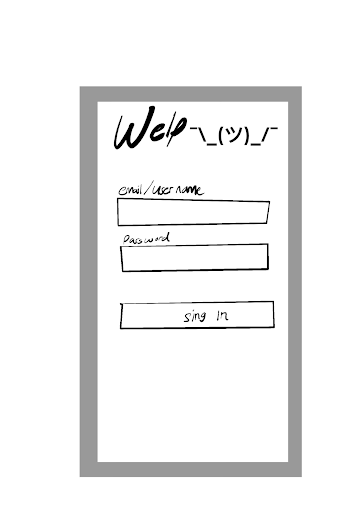 Welp ¯\_(ツ)_/¯
email/username
Password
sing In